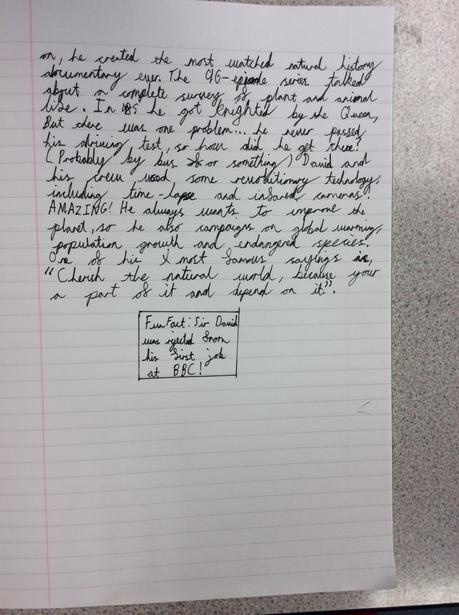 on, he created the most watched natural history
documentary ever. The 96-episode series talked
about a complete survey of plant and animal
life. In 1985 he got Knighted by the Queen,
But there was one problem... he never passed
his driving test, so how did he get there?
(Probably by bus or something) David and
his crew used some revolutionary technology,
including time-lapse and infared cameras.
AMAZING! He always wants to improve the
planet, so he also campaigns on global warming,
population growth and endangered species.
One of his most famous sayings is,
"Cherish the natural world, because your
a part of it and depend on it".
Fun Fact: Sir David
was rejected from
his first job
at BBC!